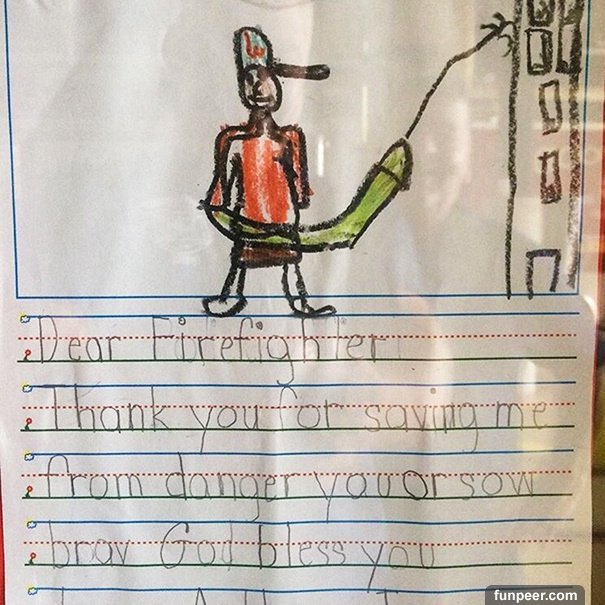 Dear Firefighter
Thank you for saving me
from danger you or sow
brav God bless you
funpeer.com